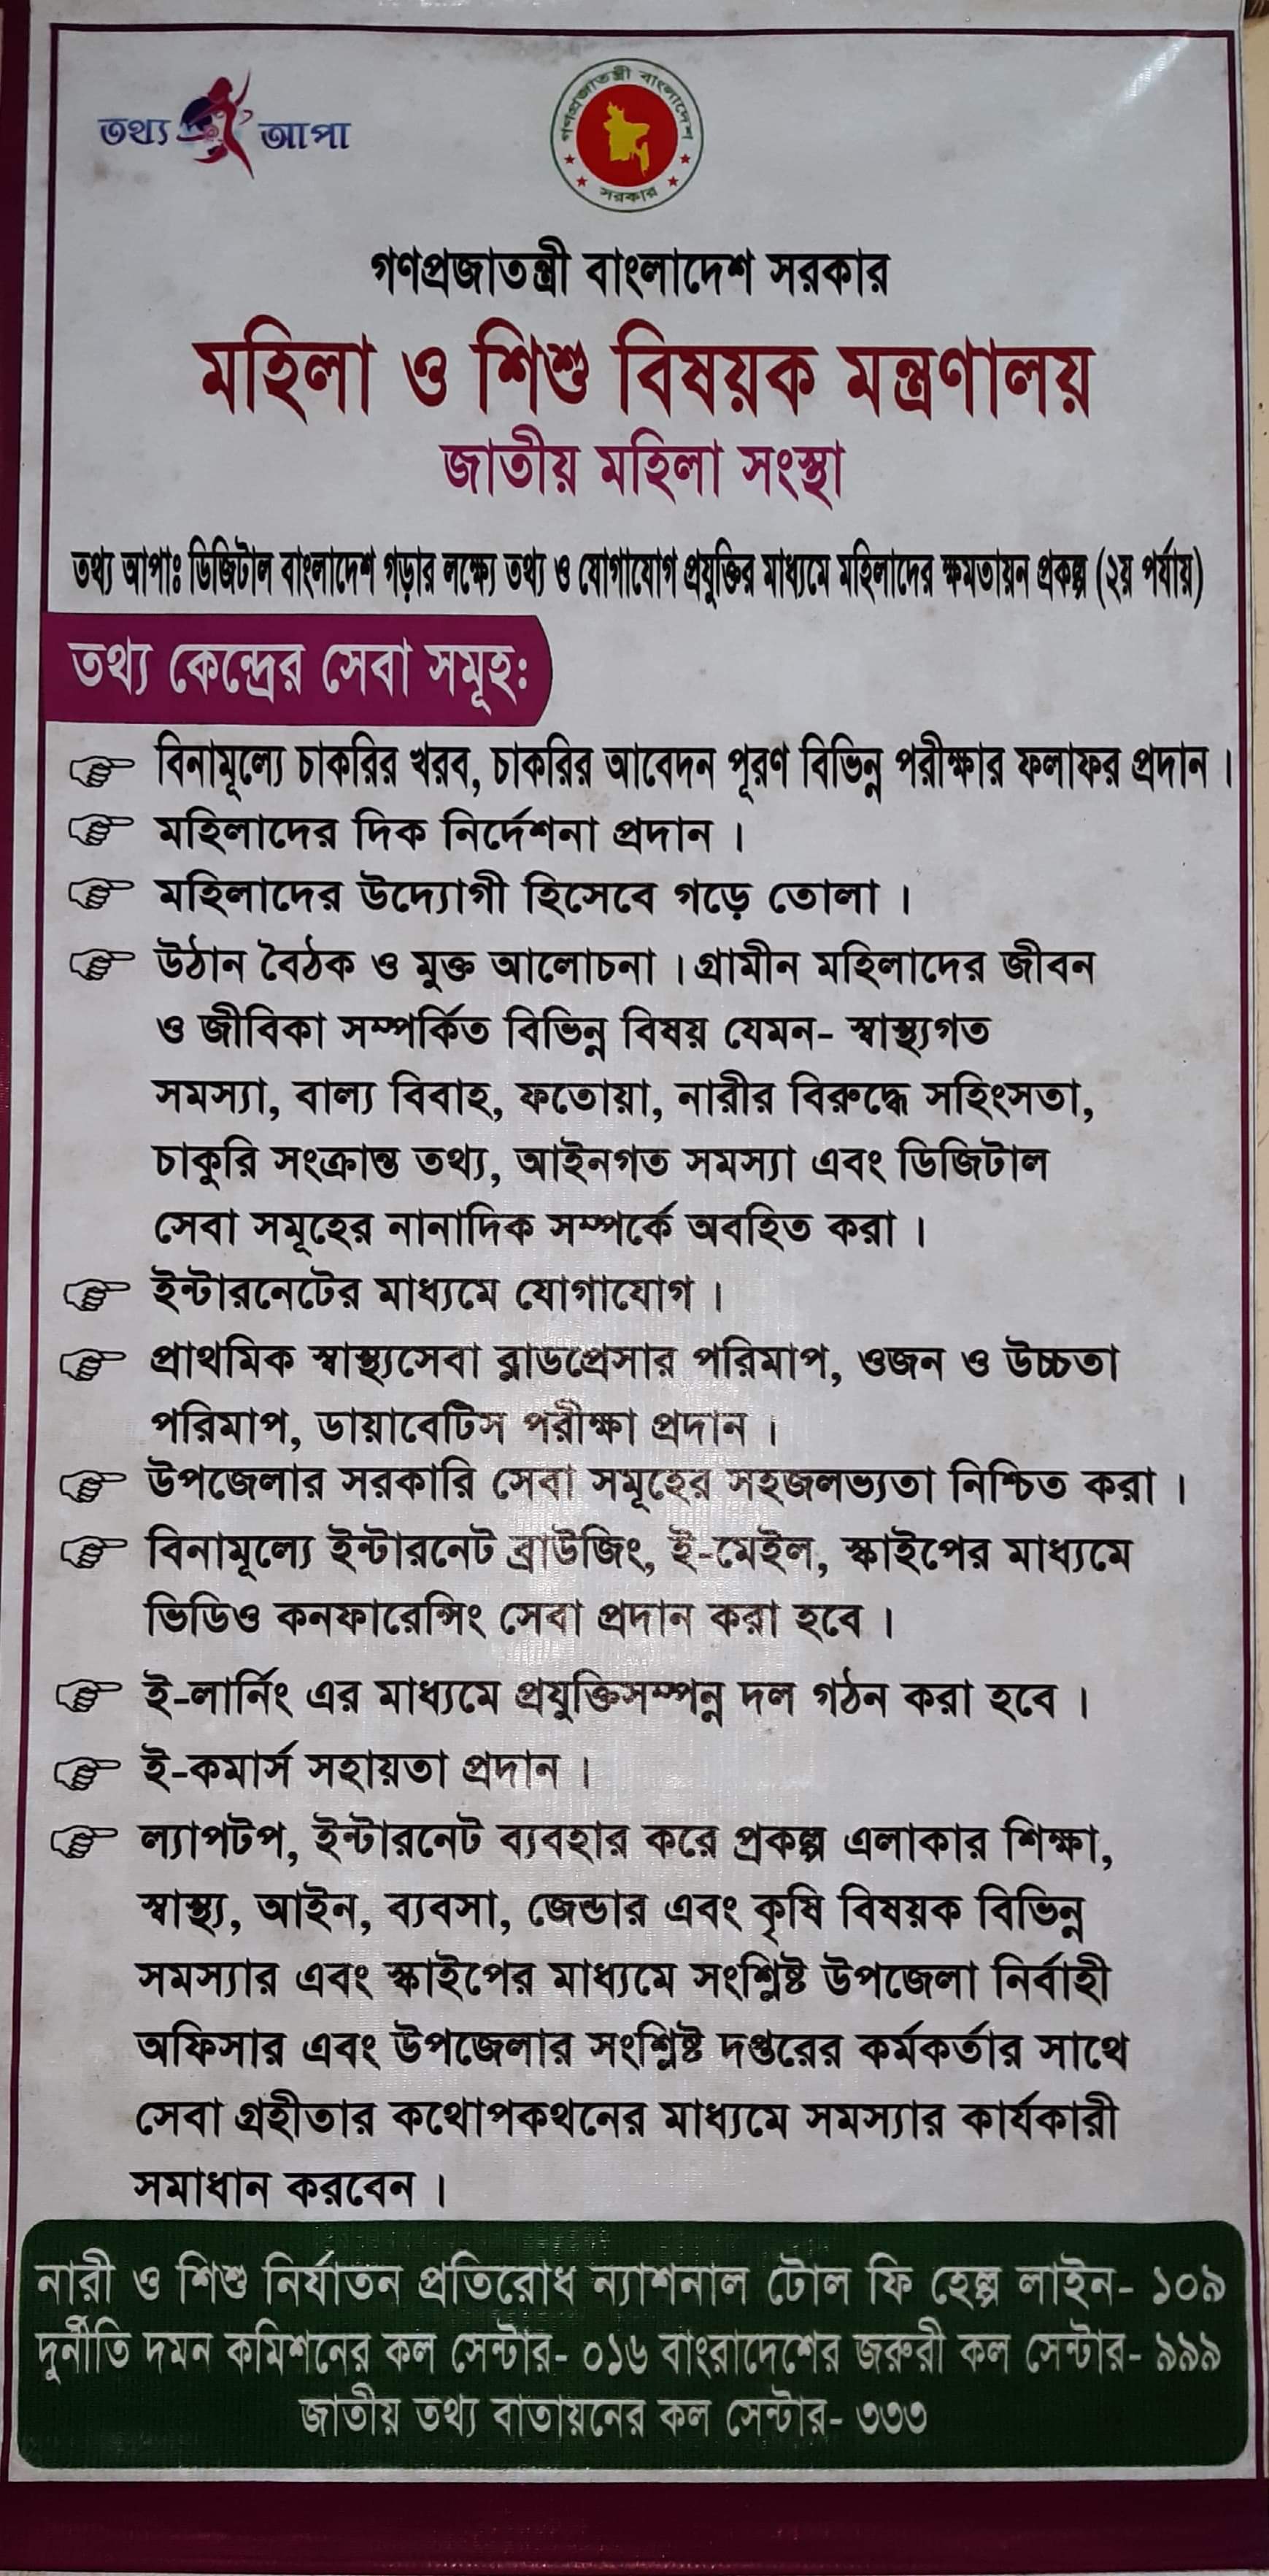 তথ্য আপা
গণপ্রজাতন্ত্রী বাংলাদেশ
সরকার
গণপ্রজাতন্ত্রী বাংলাদেশ সরকার
মহিলা ও শিশু বিষয়ক মন্ত্রণালয়
জাতীয় মহিলা সংস্থা
তথ্য আপাঃ ডিজিটাল বাংলাদেশ গড়ার লক্ষ্যে তথ্য ও যোগাযোগ প্রযুক্তির মাধ্যমে মহিলাদের ক্ষমতায়ন প্রকল্প (২য় পর্যায়)
তথ্য কেন্দ্রের সেবা সমূহ:
বিনামূল্যে চাকরির খরব, চাকরির আবেদন পূরণ বিভিন্ন পরীক্ষার ফলাফর প্রদান।
মহিলাদের দিক নির্দেশনা প্রদান।
মহিলাদের উদ্যোগী হিসেবে গড়ে তোলা।
উঠান বৈঠক ও মুক্ত আলোচনা। গ্রামীন মহিলাদের জীবন
ও জীবিকা সম্পর্কিত বিভিন্ন বিষয় যেমন- স্বাস্থ্যগত
সমস্যা, বাল্য বিবাহ, ফতোয়া, নারীর বিরুদ্ধে সহিংসতা,
চাকুরি সংক্রান্ত তথ্য, আইনগত সমস্যা এবং ডিজিটাল
সেবা সমূহের নানাদিক সম্পর্কে অবহিত করা।
ইন্টারনেটের মাধ্যমে যোগাযোগ।
প্রাথমিক স্বাস্থ্যসেবা ব্লাডপ্রেসার পরিমাপ, ওজন ও উচ্চতা
পরিমাপ, ডায়াবেটিস পরীক্ষা প্রদান।
উপজেলার সরকারি সেবা সমূহের সহজলভ্যতা নিশ্চিত করা।
বিনামূল্যে ইন্টারনেট ব্রাউজিং, ই-মেইল, স্কাইপের মাধ্যমে
ভিডিও কনফারেন্সিং সেবা প্রদান করা হবে।
ই-লার্নিং এর মাধ্যমে প্রযুক্তিসম্পন্ন দল গঠন করা হবে।
ই-কমার্স সহায়তা প্রদান।
ল্যাপটপ, ইন্টারনেট ব্যবহার করে প্রকল্প এলাকার শিক্ষা,
স্বাস্থ্য, আইন, ব্যবসা, জেন্ডার এবং কৃষি বিষয়ক বিভিন্ন
সমস্যার এবং স্কাইপের মাধ্যমে সংশ্লিষ্ট উপজেলা নির্বাহী
অফিসার এবং উপজেলার সংশ্লিষ্ট দপ্তরের কর্মকর্তার সাথে
সেবা গ্রহীতার কথোপকথনের মাধ্যমে সমস্যার কার্যকারী
সমাধান করবেন।
নারী ও শিশু নির্যাতন প্রতিরোধ ন্যাশনাল টোল ফি হেল্প লাইন- ১০৯
দুর্নীতি দমন কমিশনের কল সেন্টার- ০১৬ বাংরাদেশের জরুরী কল সেন্টার- ৯৯৯
জাতীয় তথ্য বাতায়নের কল সেন্টার- ৩৩৩